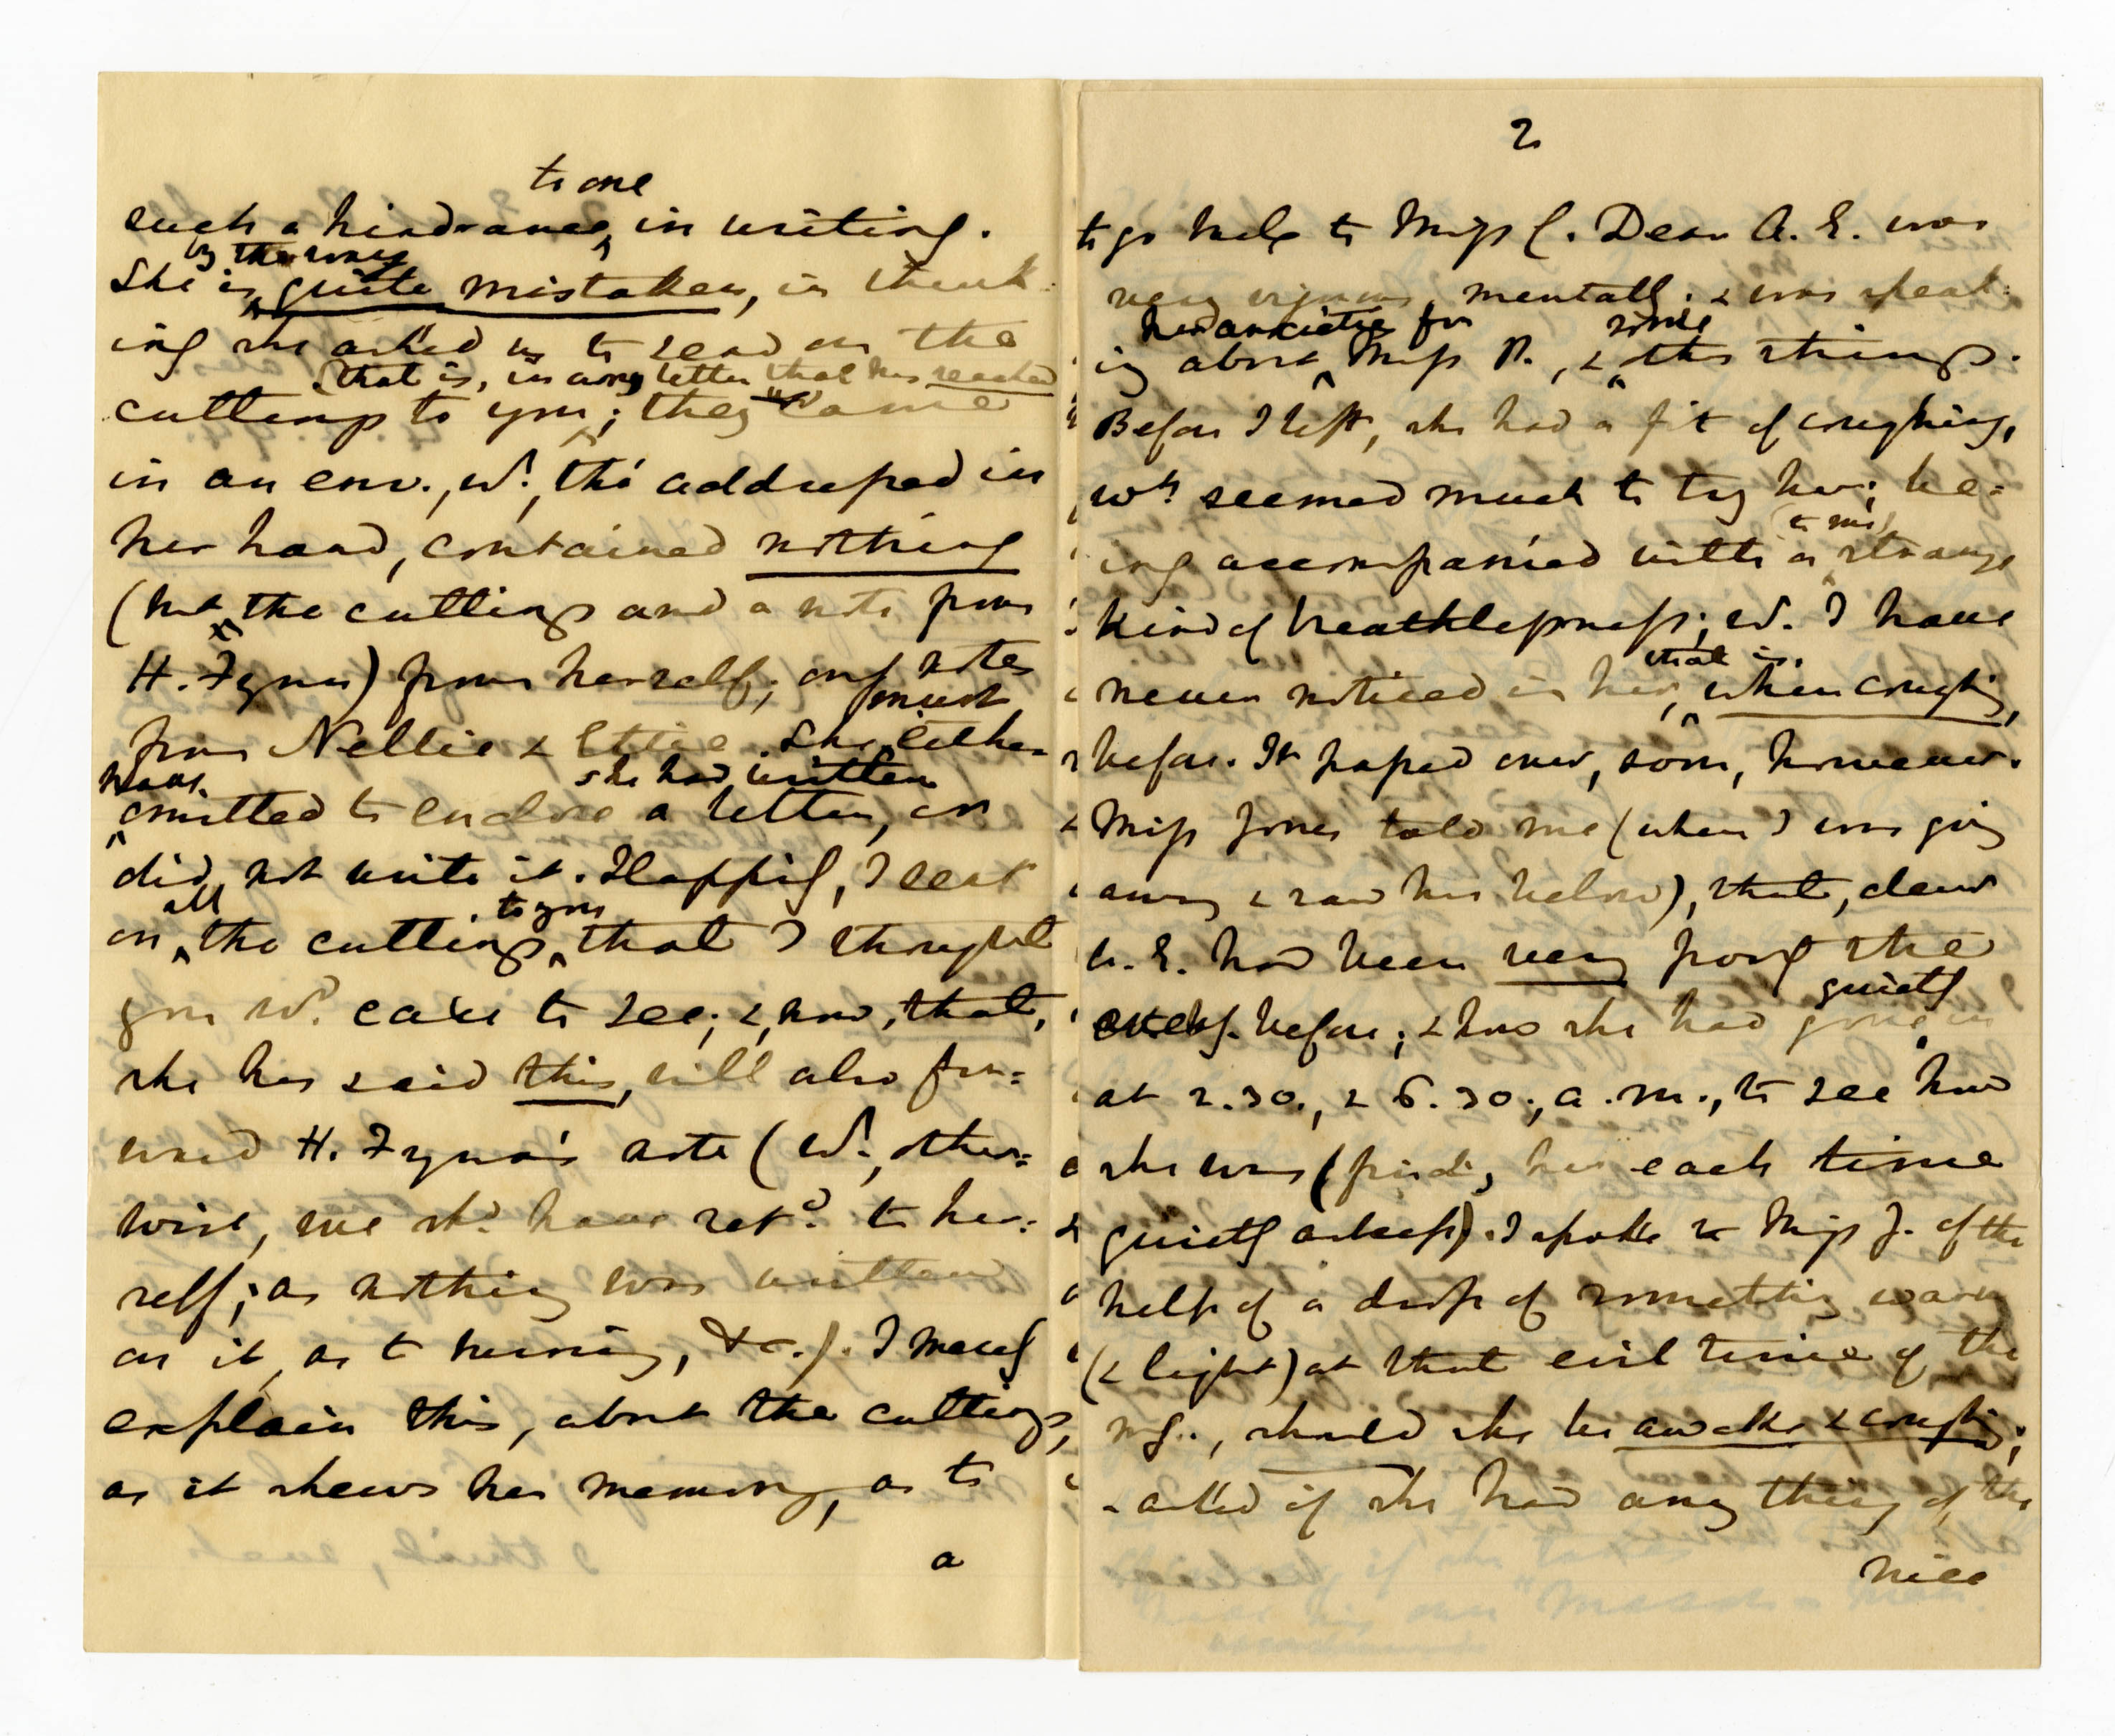 to one
such a hindrance, in writing.
by the way
She is quite mistaken, in think-
ing she asked us to send on the
(that is, in any letter that has reached
cuttings to you; they came
in an env., wh., tho' addressed in
her hand, contained nothing
(but the cuttings and a note from
H. Fynes) from herself; only notes
must
from Nellie & Ettie. She either
have
she had written
omitted to enclose a letter, or
did not write it. Happily, I sent
all
to you
on the cuttings, that I thought
you wd. care to see; &, now, that,
she has said this, will also for=
ward H. Fynes's note (wh., other=
wise, we shd. have retd. to her=
self; as nothing was written
on it, as to keeping, &c.). I merely
explain this, about the cuttings,
as it shews her memory, as to
a
2
to go to Miss C. Dear A. E. was
very vigorous, mentally. & was speak=
her anxieties for
some
ing about Miss P., & other things.
Before I left, she had a fit of coughing,
wh. seemed much to try her; be=
(to me)
ing accompanied with a strange
kind of breathlessness; wh. I have
that is,
never noticed in her, when coughing,
before. It passed over, soon, however.
Miss Jones told me (when I was going
away & saw her below), that, dear
A. E. had been very poorly the
quietly
before; & how she had gone in
at 2.30., & 6.30., a.m., to see how
she was (findg. her each time
quietly asleep). I spoke to Miss J. of the
help of a drop of something warm
(& light) at that evil time of the
mg., should she be awake & coughing;
- asked if she had any thing of the
nice